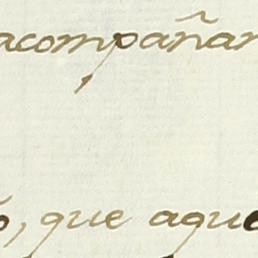 acompañar
, que aque